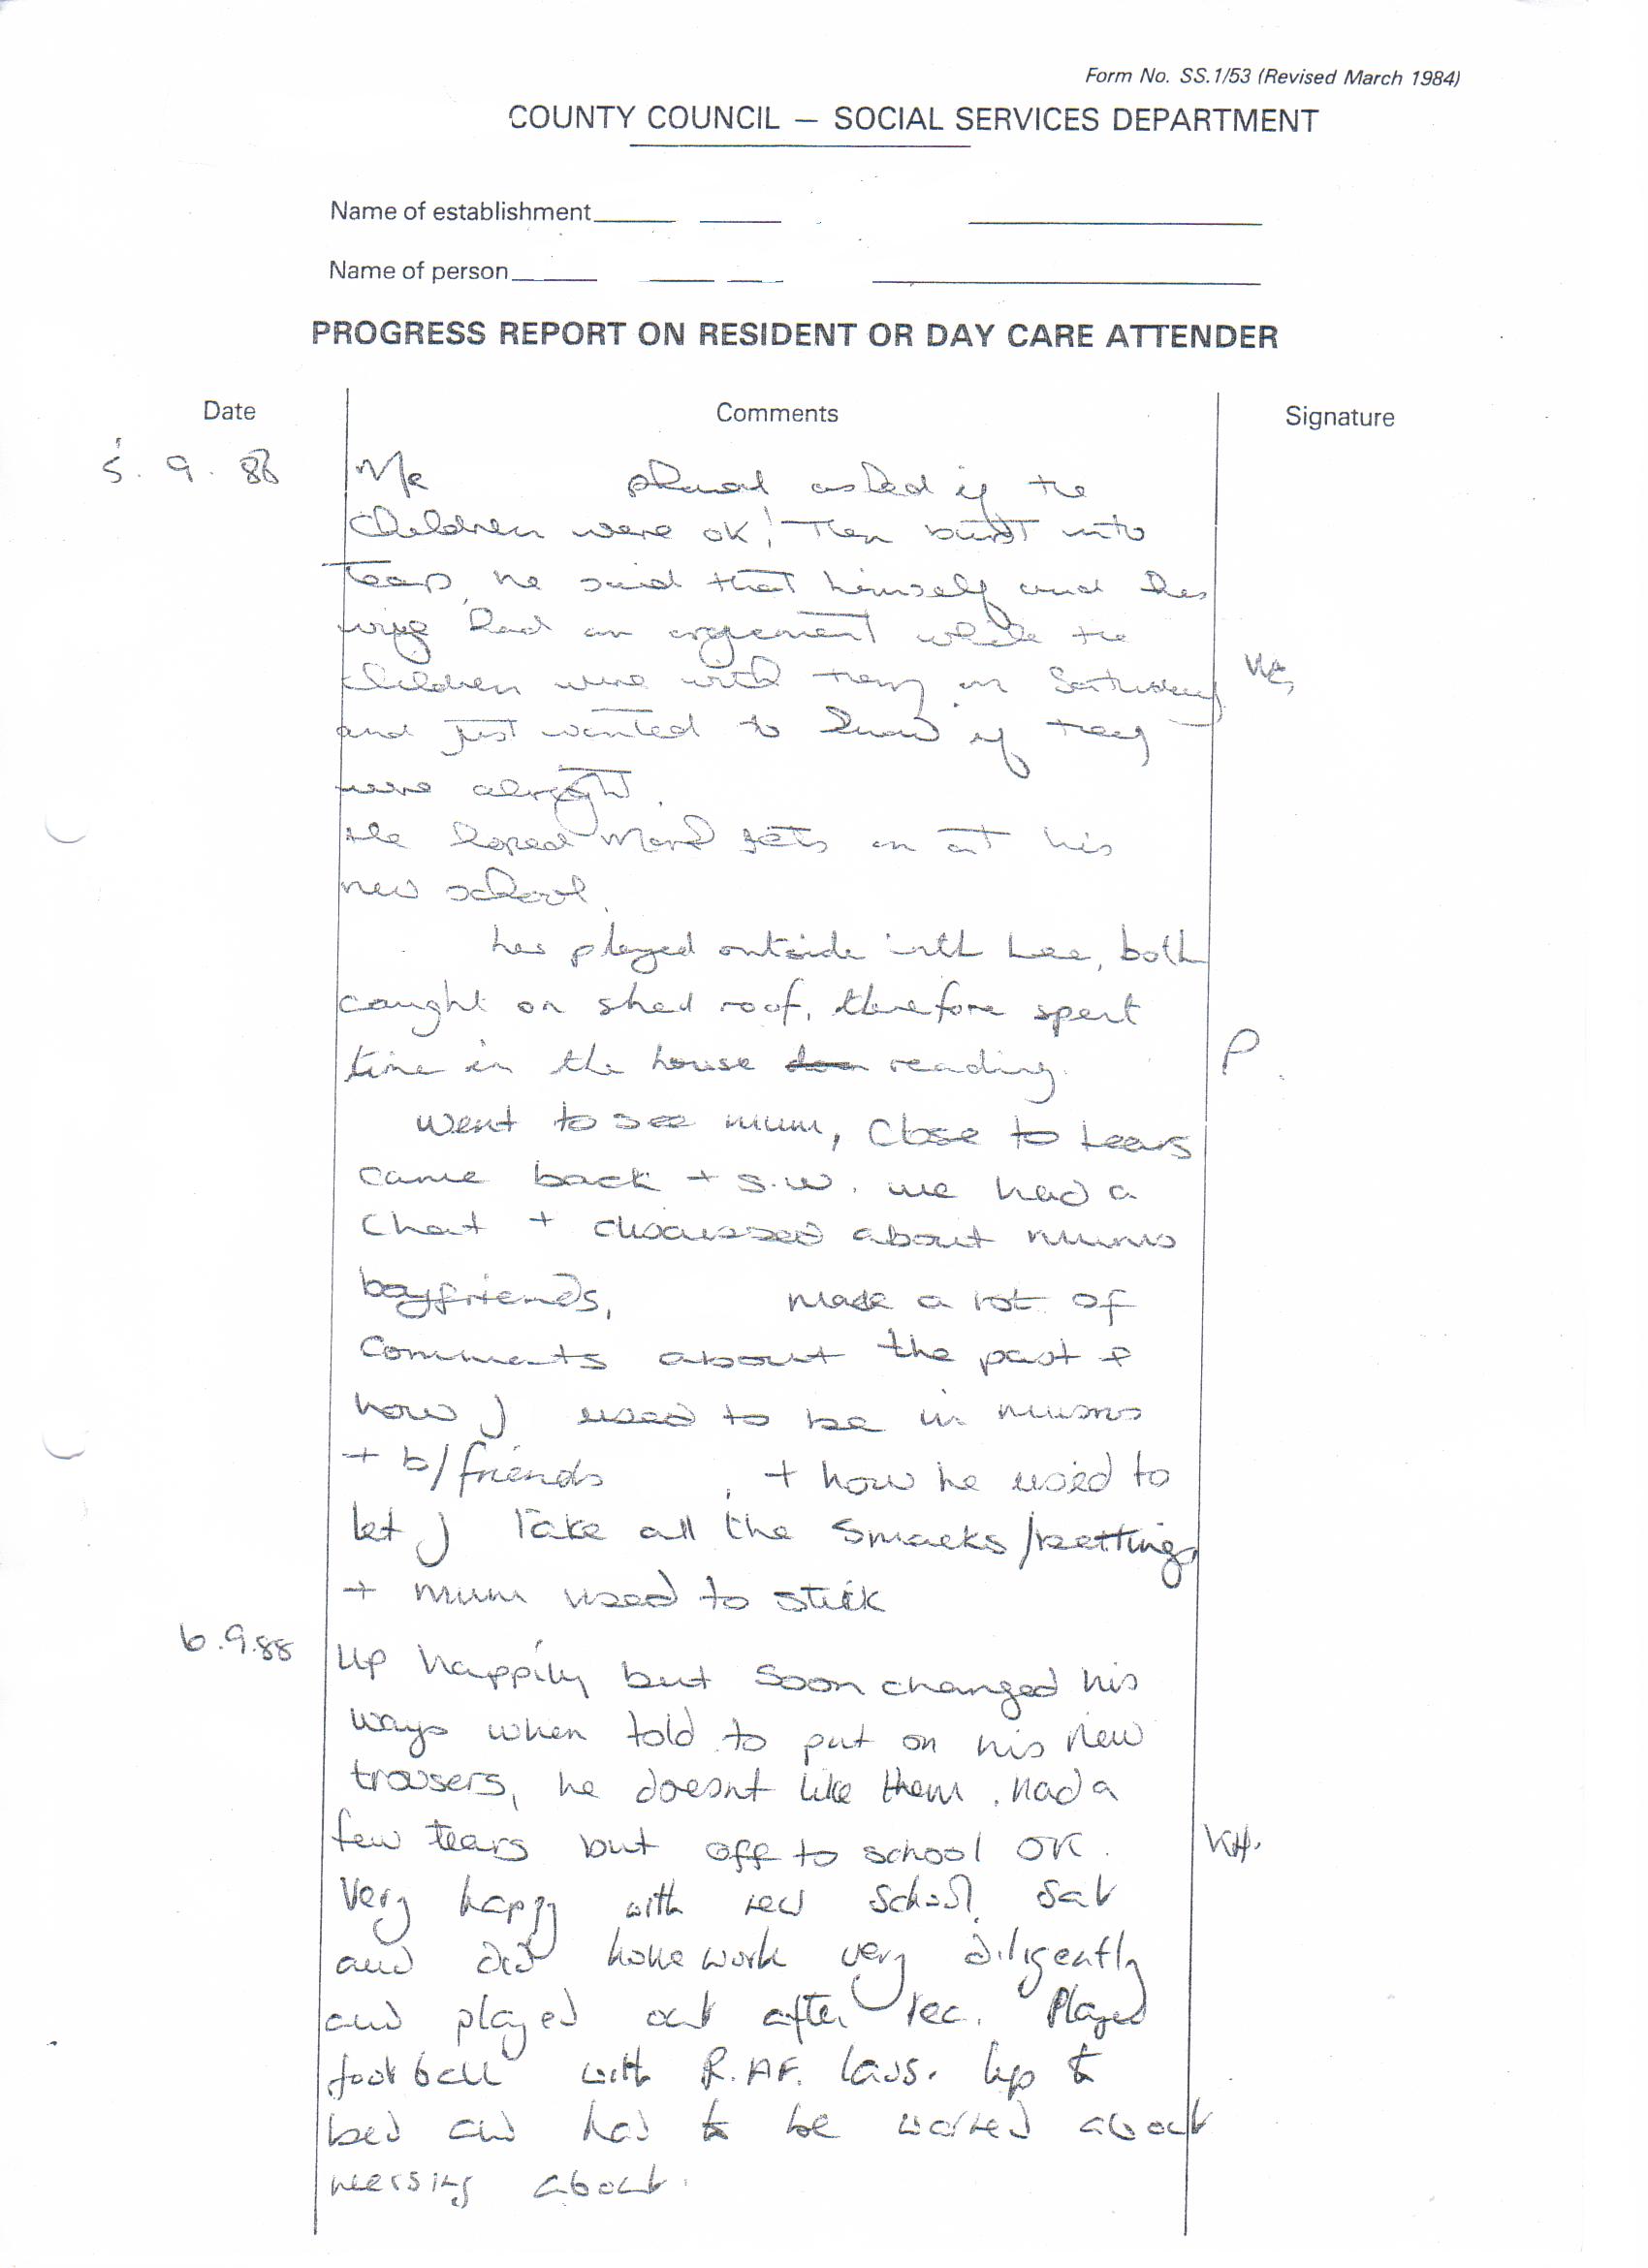 Form No. SS.1/53 (Revised March 1984)
COUNTY COUNCIL — SOCIAL SERVICES DEPARTMENT
Name of establishment
Name of person
PROGRESS REPORT ON RESIDENT OR DAY CARE ATTENDER
Date Comments Signature
5.9.88 Mr phoned asked if the
children were ok! Then burst into
tears, he said that himself and his
wife had an argement while the
children were with them on Saturday
and just wanted to know if they
were alright.
He hoped Mark gets on at his
new school.
has played outside with Lee, both
caught on shed roof, therefore spent
time in the house reading. P.
went to see mum, close to tears
came back + s.w. we had a
chat + discussed about mums
boyfriends, made a lot of
comments about the past +
how J used to be in mums
+ b/friends , + how he used to
let J take all the smacks/
+ mum used to stick
6.9.88 up happily but soon changed his
ways when told to put on his new
trousers, he doesnt like them. had a
few tears but off to school OK. KH.
Very happy with new school. Sat
and did homework very diligently
and played out after tea. Played
football with R.AF. lads. Up to
bed and had to be warned about
messing about.